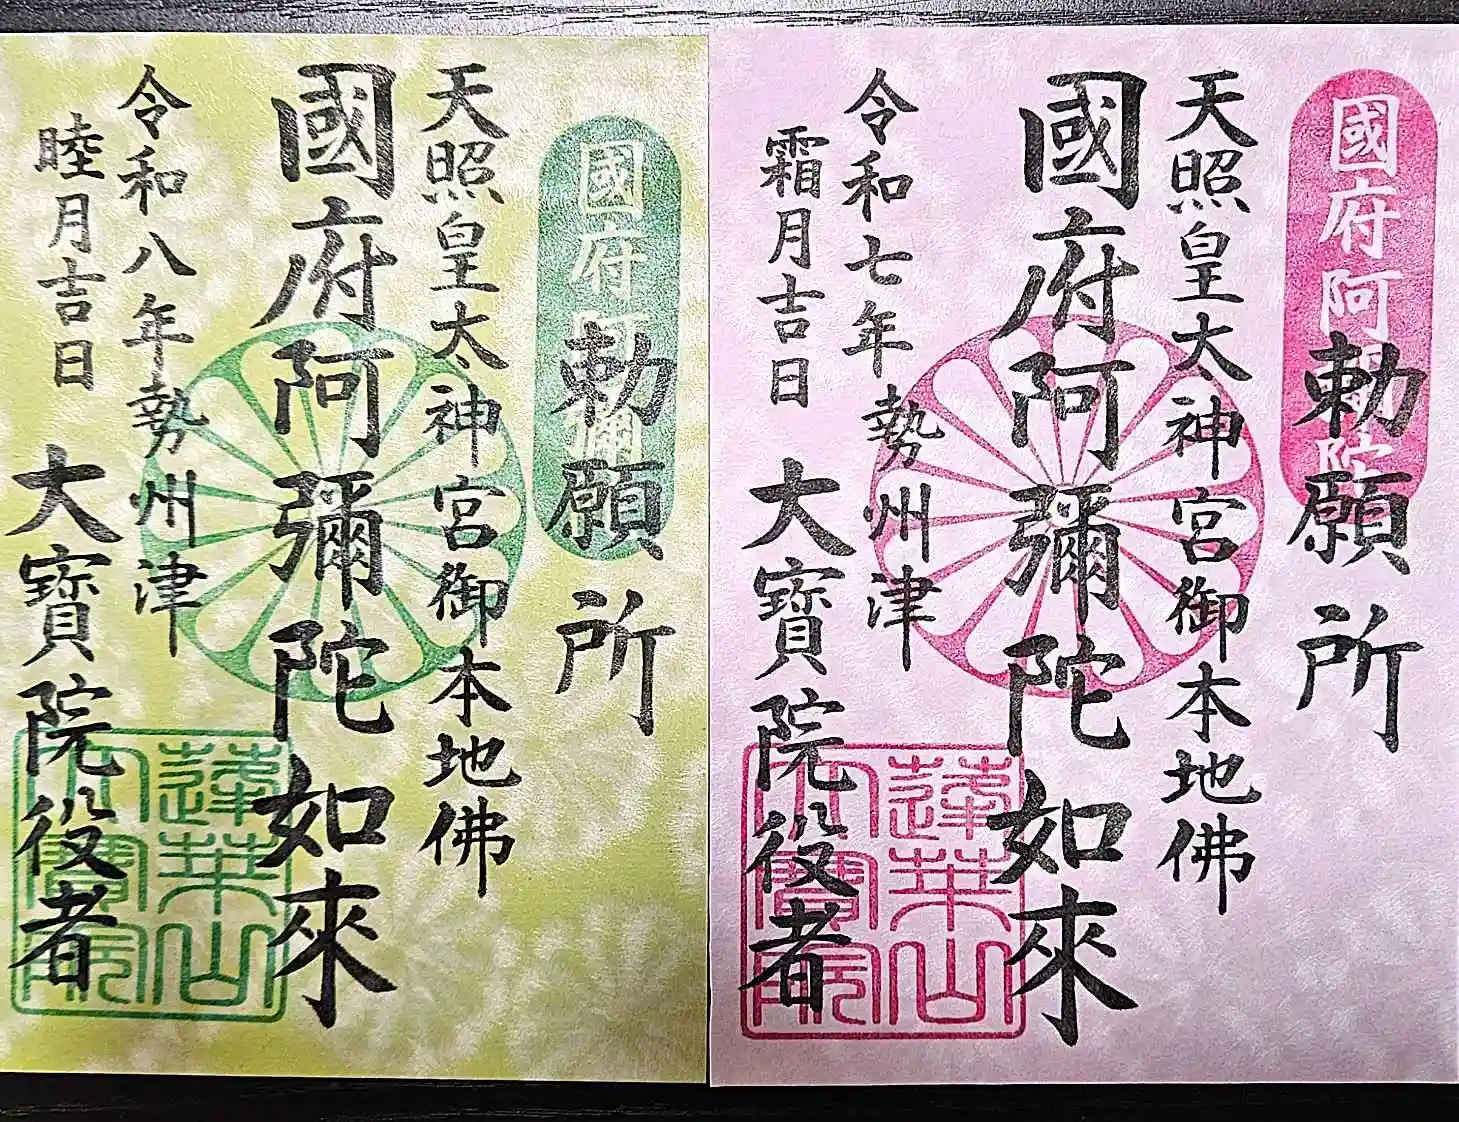 國府阿彌
勅願所
天照皇太神宮御本地佛
國府阿彌陀如來
令和八年勢州津
睦月吉日
大寶院役者
蓮華山
大寶院
國府阿彌陀
勅願所
天照皇大神宮御本地佛
國府阿彌陀如來
令和七年勢州津
霜月吉日
大寶院役者
蓮華山
大寶院